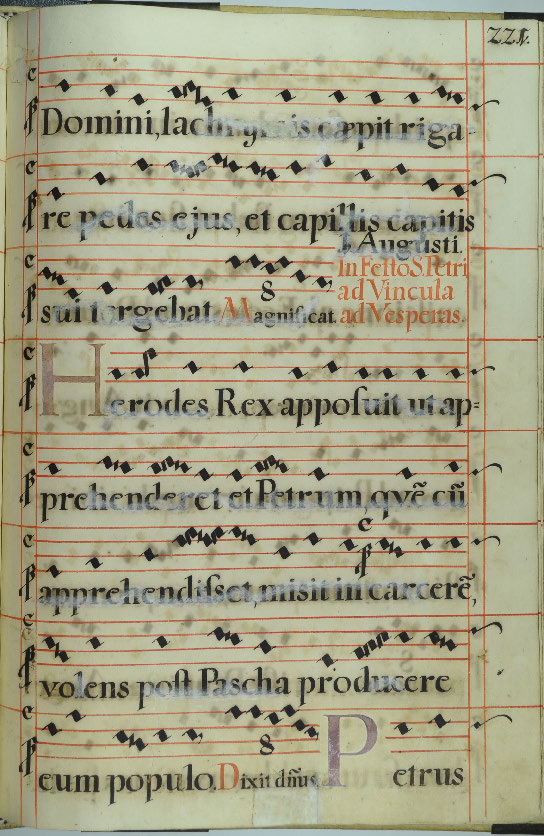 221.
Domini, lachrymis cæpit riga-
re pedes ejus, et capillis capitis
1. Augusti.
In Festo S. Petri
ad Vincula
ad Vesperas.
sui tergebat. Magnificat.
8
Herodes Rex apposuit ut ap=
prehenderet et Petrum, quẽ cũ
apprehendisset, misit in carcerẽ,
volens post Pascha producere
eum populo. Dixit dñus. Petrus
8